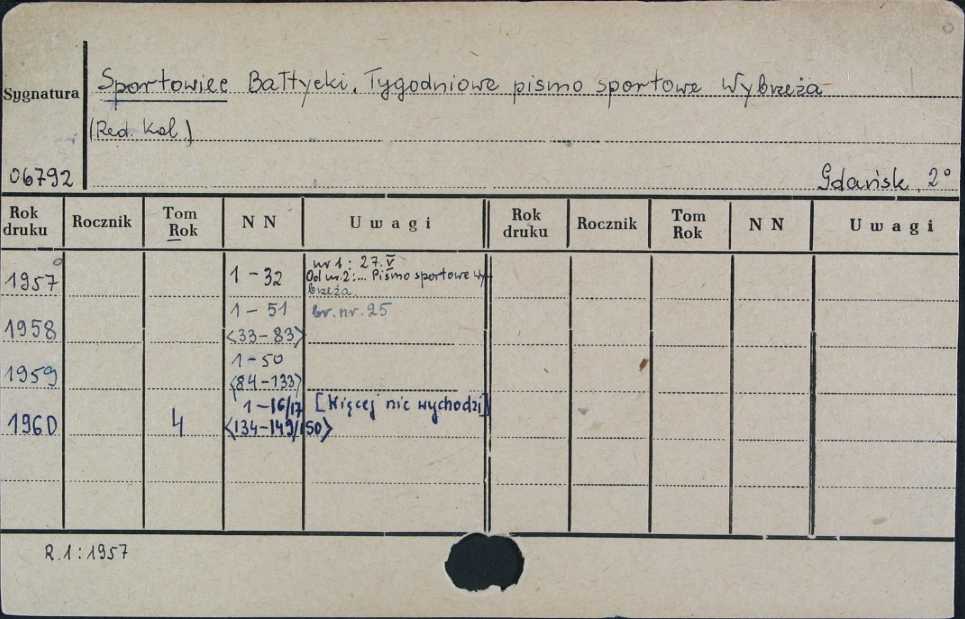 Sygnatura
Sportowiec Bałtycki. Tygodniowe pismo sportowe Wybrzeża
(Red. Kol.)
06792
Gdańsk, 2°
Rok druku Rocznik Tom Rok NN Uwagi Rok druku Rocznik Tom Rok NN Uwagi
1957 1-32 nr 1: 27.V
Od nr. 2:... Pismo sportowe Wy-
brzeża.
1958 1-51 br. nr. 25
<33-83>
1959 1-50
<84-133>
1960 4 1-16/17 [Więcej nie wychodzi]
<134-149/150>
R.1:1957